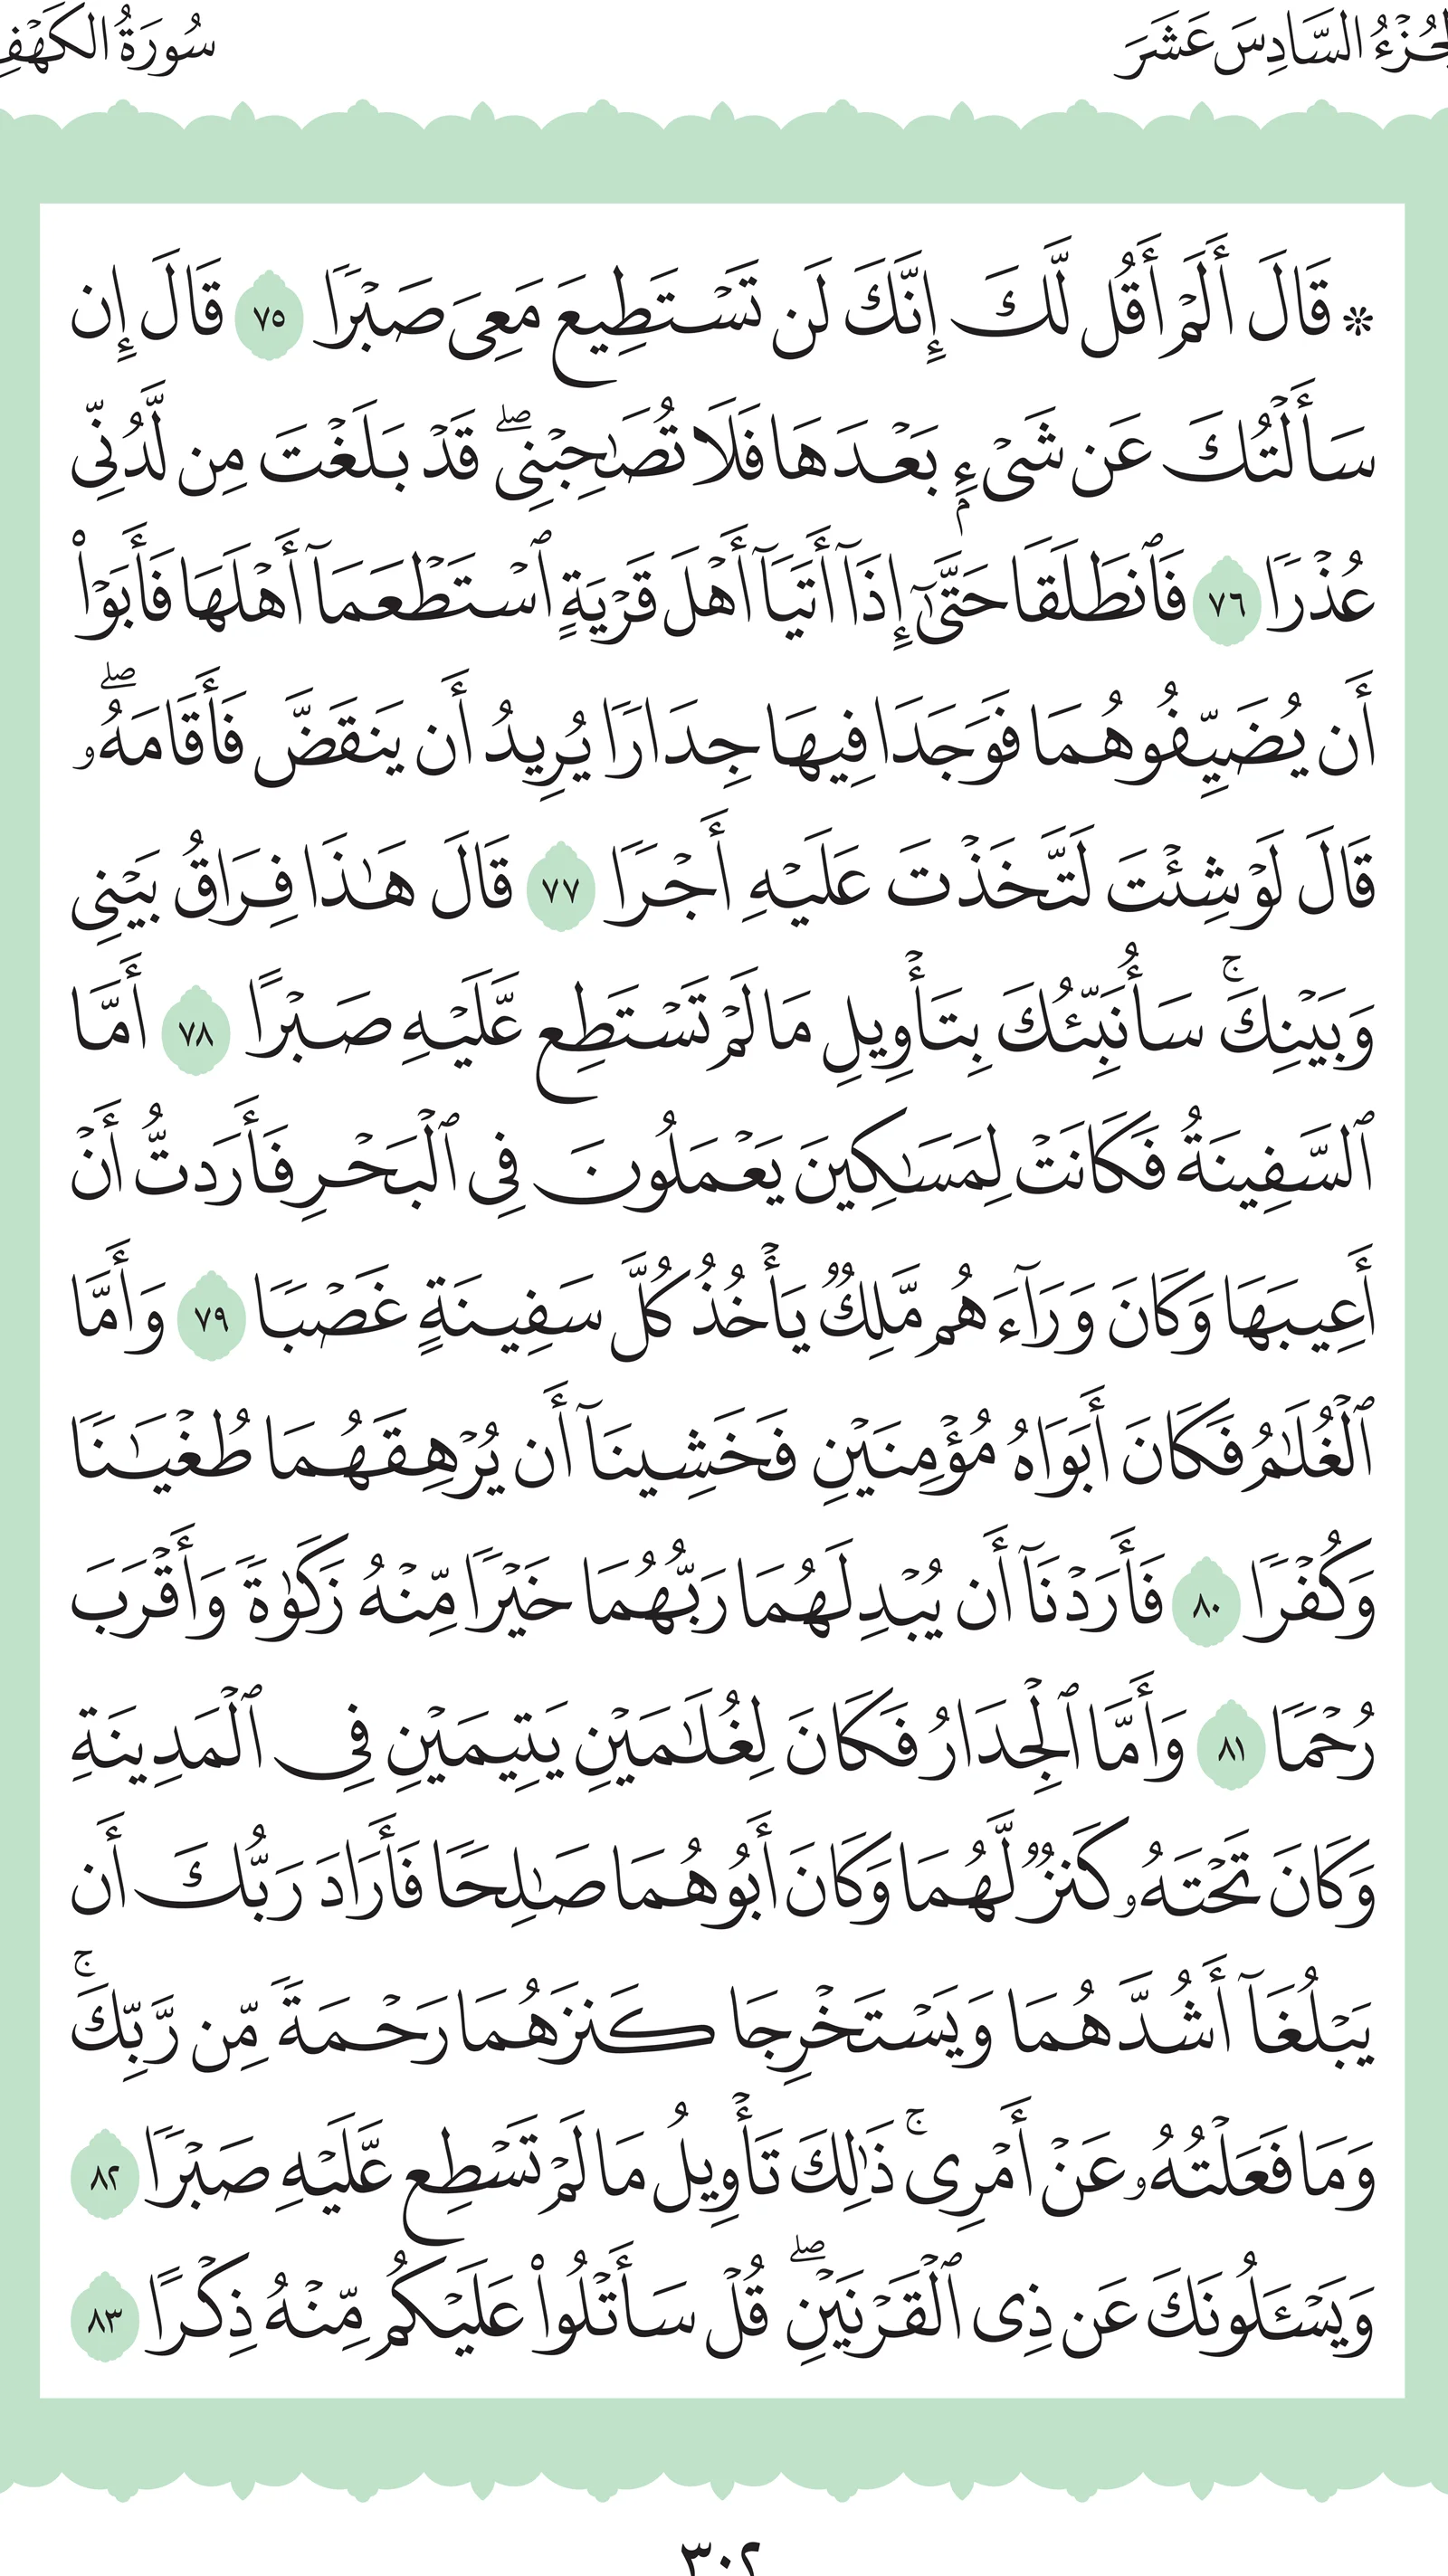 الجُزْءُ السَّادِسَ عَشَرَ
سُورَةُ الكَهْفِ
۞ قَالَ أَلَمْ أَقُل لَّكَ إِنَّكَ لَن تَسْتَطِيعَ مَعِىَ صَبْرًا ٧٥ قَالَ إِن
سَأَلْتُكَ عَن شَىْءٍۭ بَعْدَهَا فَلَا تُصَـٰحِبْنِى ۖ قَدْ بَلَغْتَ مِن لَّدُنِّى
عُذْرًا ٧٦ فَٱنطَلَقَا حَتَّىٰٓ إِذَآ أَتَيَآ أَهْلَ قَرْيَةٍ ٱسْتَطْعَمَآ أَهْلَهَا فَأَبَوْا۟
أَن يُضَيِّفُوهُمَا فَوَجَدَا فِيهَا جِدَارًا يُرِيدُ أَن يَنقَضَّ فَأَقَامَهُۥ ۖ
قَالَ لَوْ شِئْتَ لَتَّخَذْتَ عَلَيْهِ أَجْرًا ٧٧ قَالَ هَـٰذَا فِرَاقُ بَيْنِى
وَبَيْنِكَ ۚ سَأُنَبِّئُكَ بِتَأْوِيلِ مَا لَمْ تَسْتَطِع عَّلَيْهِ صَبْرًا ٧٨ أَمَّا
ٱلسَّفِينَةُ فَكَانَتْ لِمَسَـٰكِينَ يَعْمَلُونَ فِى ٱلْبَحْرِ فَأَرَدتُّ أَنْ
أَعِيبَهَا وَكَانَ وَرَآءَهُم مَّلِكٌ يَأْخُذُ كُلَّ سَفِينَةٍ غَصْبًا ٧٩ وَأَمَّا
ٱلْغُلَـٰمُ فَكَانَ أَبَوَاهُ مُؤْمِنَيْنِ فَخَشِينَآ أَن يُرْهِقَهُمَا طُغْيَـٰنًا
وَكُفْرًا ٨٠ فَأَرَدْنَآ أَن يُبْدِلَهُمَا رَبُّهُمَا خَيْرًا مِّنْهُ زَكَوٰةً وَأَقْرَبَ
رُحْمًا ٨١ وَأَمَّا ٱلْجِدَارُ فَكَانَ لِغُلَـٰمَيْنِ يَتِيمَيْنِ فِى ٱلْمَدِينَةِ
وَكَانَ تَحْتَهُۥ كَنزٌ لَّهُمَا وَكَانَ أَبُوهُمَا صَـٰلِحًا فَأَرَادَ رَبُّكَ أَن
يَبْلُغَآ أَشُدَّهُمَا وَيَسْتَخْرِجَا كَنزَهُمَا رَحْمَةً مِّن رَّبِّكَ ۚ
وَمَا فَعَلْتُهُۥ عَنْ أَمْرِى ۚ ذَٰلِكَ تَأْوِيلُ مَا لَمْ تَسْطِع عَّلَيْهِ صَبْرًا ٨٢
وَيَسْـَٔلُونَكَ عَن ذِى ٱلْقَرْنَيْنِ ۖ قُلْ سَأَتْلُوا۟ عَلَيْكُم مِّنْهُ ذِكْرًا ٨٣
٣٠٢